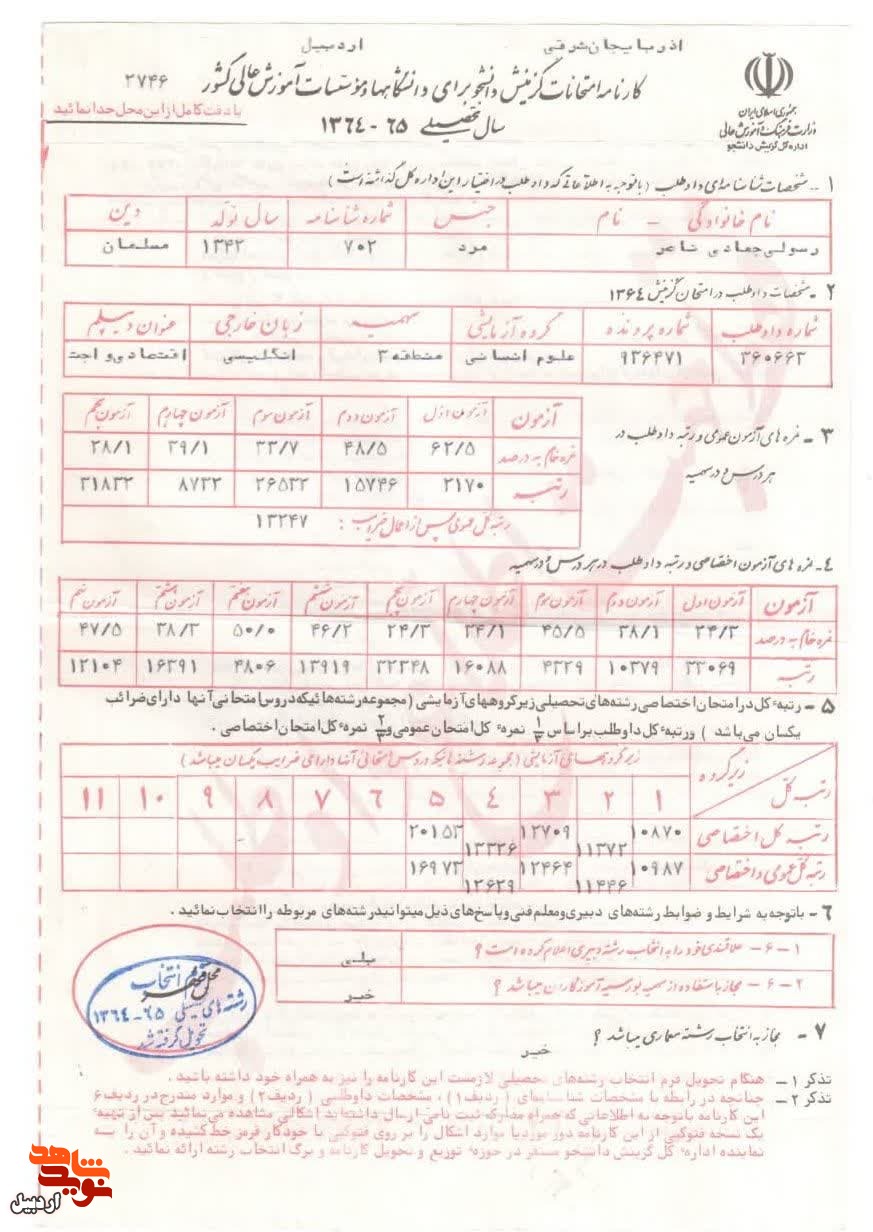 اذربایجان شرقی اردبیل
جمهوری اسلامی ایران
وزارت فرهنگ و آموزش عالی
اداره کل گزینش دانشجو
کارنامه امتحانات گزینش دانشجو برای دانشگاهها و مؤسسات آموزش عالی کشور
سال تحصیلی ۶۵ - ۱۳۶۴
۲۷۴۶
با دقت کامل از این محل جدا نمائید
۱ - مشخصات شناسنامه‌ای داوطلب ( با توجه به اطلاعاتی که داوطلب در اختیار این اداره کل گذاشته است )
نام خانوادگی - نام جنس شماره شناسنامه سال تولد دین
رسولی جهادی شاعر مرد ۷۰۲ ۱۳۴۲ مسلمان
۲ - مشخصات داوطلب در امتحان گزینش ۱۳۶۴
شماره داوطلب شماره پرونده گروه آزمایشی سهمیه زبان خارجی عنوان دیپلم
۳۶۰۶۶۳ ۹۳۶۴۷۱ علوم انسانی منطقه ۳ انگلیسی اقتصادی و اجت
۳ - نمره های آزمون عمومی و رتبه داوطلب در
هر درس و در سهمیه
آزمون آزمون اول آزمون دوم آزمون سوم آزمون چهارم آزمون پنجم
نمره خام به درصد ۶۲/۵ ۴۸/۵ ۳۳/۷ ۳۹/۱ ۲۸/۱
رتبه ۲۱۷۰ ۱۵۷۴۶ ۲۶۵۳۲ ۸۷۳۲ ۳۱۸۳۲
رتبه کل عمومی پس از اعمال ضرایب : ۱۳۲۴۷
۴ - نمره های آزمون اختصاصی و رتبه داوطلب در هر درس و در سهمیه
آزمون آزمون اول آزمون دوم آزمون سوم آزمون چهارم آزمون پنجم آزمون ششم آزمون هفتم آزمون هشتم آزمون نهم
نمره خام به درصد ۲۴/۳ ۳۸/۱ ۴۵/۵ ۳۴/۱ ۲۴/۳ ۴۶/۲ ۵۰/۰ ۳۸/۳ ۴۷/۵
رتبه ۳۳۰۶۹ ۱۰۳۷۹ ۴۳۲۹ ۱۶۰۸۸ ۳۲۳۴۸ ۱۳۹۱۹ ۴۸۰۶ ۱۶۳۹۱ ۱۲۱۰۴
۵ - رتبه کل در امتحان اختصاصی رشته‌های تحصیلی زیر گروههای آزمایشی ( مجموعه رشته‌هائیکه دروس امتحانی آنها دارای ضرائب
یکسان می‌باشد ) و رتبه کل داوطلب بر اساس ۱/۳ نمره کل امتحان عمومی و ۲/۳ نمره کل امتحان اختصاصی .
زیر گروه رتبه کل
زیر گروههای آزمایشی ( مجموعه رشته هائیکه دروس امتحانی آنها دارای ضرایب یکسان میباشد )
۱ ۲ ۳ ۴ ۵ ۶ ۷ ۸ ۹ ۱۰ ۱۱
رتبه کل اختصاصی ۱۰۸۷۰ ۱۱۳۷۲ ۱۲۷۰۹ ۱۳۳۲۶ ۲۰۱۵۳
رتبه کل عمومی و اختصاصی ۱۰۹۸۷ ۱۱۴۴۶ ۱۲۴۶۴ ۱۲۶۲۹ ۱۶۹۷۳
۶ - با توجه به شرایط و ضوابط رشته‌های دبیری و معلم فنی و پاسخ‌های ذیل میتوانید رشته‌های مربوطه را انتخاب نمائید .
۱ - ۶ - علاقمندی خود را به انتخاب رشته دبیری اعلام کرده است ؟ بلی
۲ - ۶ - مجاز با استفاده از سهمیه بورسیه آموزگاران میباشد ؟ خیر
فرم انتخاب
محل مهر
رشته های تحصیلی ۶۵ - ۱۳۶۴
تحویل گرفته شد
۷ - مجاز به انتخاب رشته معماری میباشد ؟ خیر
تذکر ۱ - هنگام تحویل فرم انتخاب رشته‌های تحصیلی لازمست این کارنامه را نیز به همراه خود داشته باشید .
تذکر ۲ - چنانچه در رابطه با مشخصات شناسنامه‌ای ( ردیف ۱ ) ، مشخصات داوطلبی ( ردیف ۲ ) و موارد مندرج در ردیف ۶
این کارنامه با توجه به اطلاعاتی که همراه مدارک ثبت نامی ارسال داشته‌اید اشکالی مشاهده می‌نمائید پس از تهیه
یک نسخه فتوکپی از این کارنامه دور مورد یا موارد اشکال را بر روی فتوکپی با خودکار قرمز خط کشیده و آن را به
نماینده اداره کل گزینش دانشجو مستقر در حوزه توزیع و تحویل کارنامه و برگ انتخاب رشته ارائه نمائید .
نوید شاهد
اردبیل